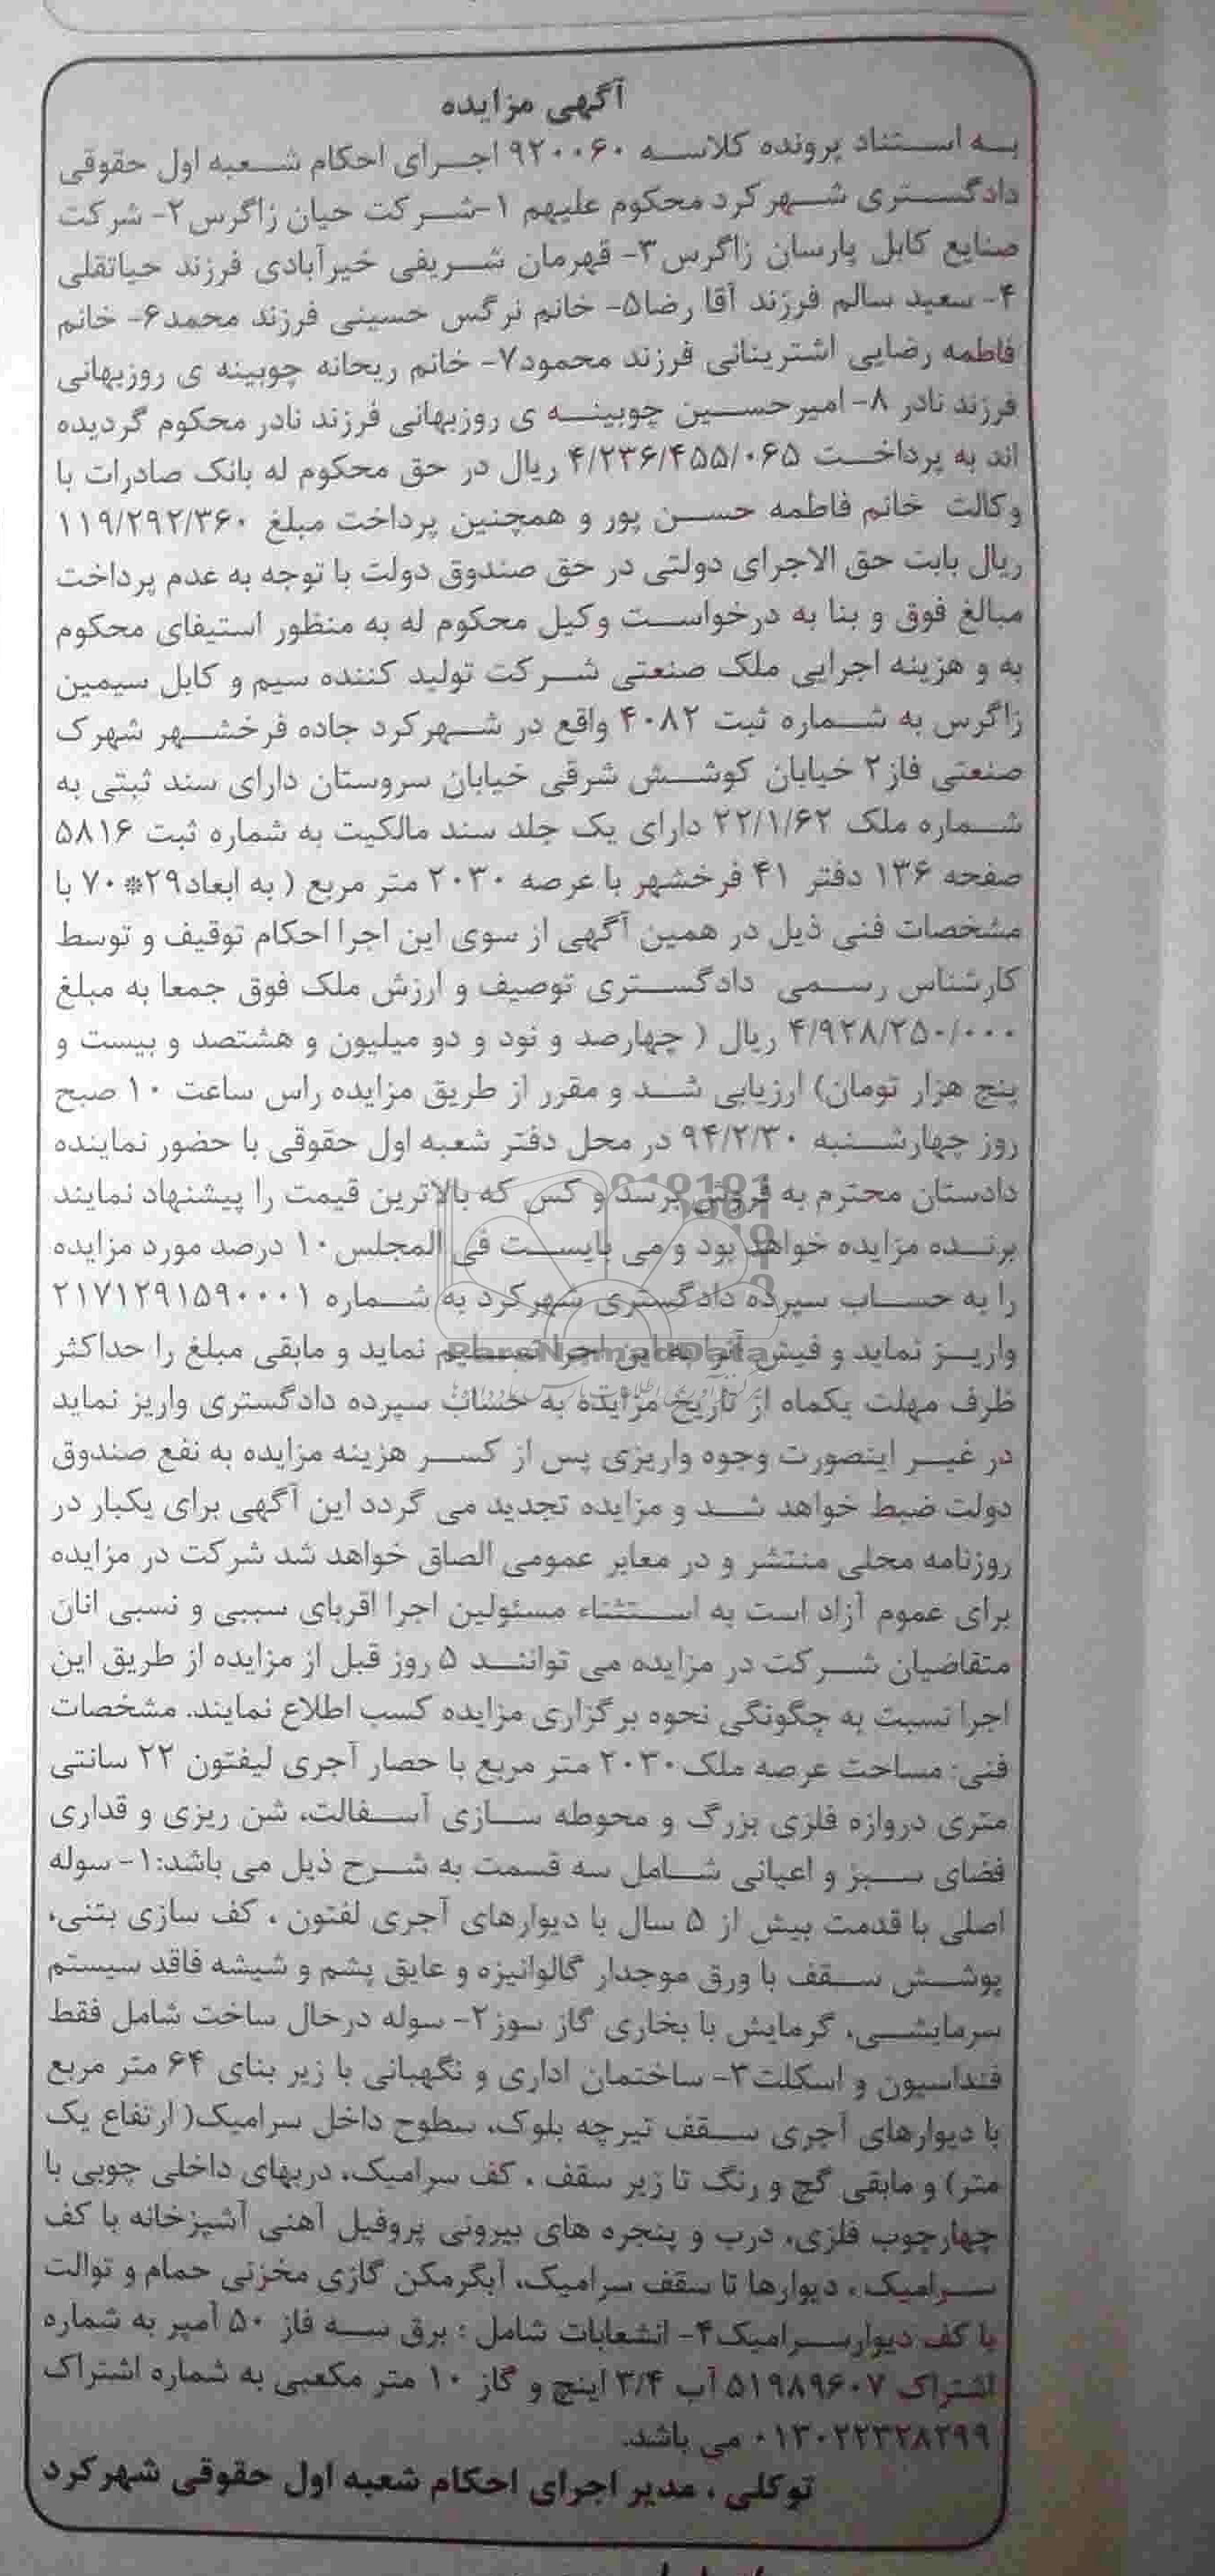 آگهی مزایده
به استناد پرونده کلاسه ۹۲۰۰۶۰ اجرای احکام شعبه اول حقوقی
دادگستری شهرکرد محکوم علیهم ۱-شرکت حیان زاگرس۲- شرکت
صنایع کابل پارسان زاگرس۳- قهرمان شریفی خیرآبادی فرزند حیاتقلی
۴- سعید سالم فرزند آقا رضا۵- خانم نرگس حسینی فرزند محمد۶- خانم
فاطمه رضایی اشترینانی فرزند محمود۷- خانم ریحانه چوبینه ی روزبهانی
فرزند نادر ۸- امیرحسین چوبینه ی روزبهانی فرزند نادر محکوم گردیده
اند به پرداخت ۴/۲۳۶/۴۵۵/۰۶۵ ریال در حق محکوم له بانک صادرات با
وکالت خانم فاطمه حسن پور و همچنین پرداخت مبلغ ۱۱۹/۲۹۲/۳۶۰
ریال بابت حق الاجرای دولتی در حق صندوق دولت با توجه به عدم پرداخت
مبالغ فوق و بنا به درخواست وکیل محکوم له به منظور استیفای محکوم
به و هزینه اجرایی ملک صنعتی شرکت تولید کننده سیم و کابل سیمین
زاگرس به شماره ثبت ۴۰۸۲ واقع در شهرکرد جاده فرخشهر شهرک
صنعتی فاز۲ خیابان کوشش شرقی خیابان سروستان دارای سند ثبتی به
شماره ملک ۲۲/۱/۶۲ دارای یک جلد سند مالکیت به شماره ثبت ۵۸۱۶
صفحه ۱۳۶ دفتر ۴۱ فرخشهر با عرصه ۲۰۳۰ متر مربع ( به ابعاد۲۹*۷۰ با
مشخصات فنی ذیل در همین آگهی از سوی این اجرا احکام توقیف و توسط
کارشناس رسمی دادگستری توصیف و ارزش ملک فوق جمعا به مبلغ
۴/۹۲۸/۲۵۰/۰۰۰ ریال ( چهارصد و نود و دو میلیون و هشتصد و بیست و
پنج هزار تومان) ارزیابی شد و مقرر از طریق مزایده راس ساعت ۱۰ صبح
روز چهارشنبه ۹۴/۲/۳۰ در محل دفتر شعبه اول حقوقی با حضور نماینده
دادستان محترم به فروش برسد و کس که بالاترین قیمت را پیشنهاد نمایند
برنده مزایده خواهد بود و می بایست فی المجلس۱۰ درصد مورد مزایده
را به حساب سپرده دادگستری شهرکرد به شماره ۲۱۷۱۲۹۱۵۹۰۰۰۱
واریز نماید و فیش آنرا به این اجرا تسلیم نماید و مابقی مبلغ را حداکثر
ParsNamadData
ظرف مهلت یکماه از تاریخ مزایده به حساب سپرده دادگستری واریز نماید
در غیر اینصورت وجوه واریزی پس از کسر هزینه مزایده به نفع صندوق
دولت ضبط خواهد شد و مزایده تجدید می گردد این آگهی برای یکبار در
روزنامه محلی منتشر و در معابر عمومی الصاق خواهد شد شرکت در مزایده
برای عموم آزاد است به استثناء مسئولین اجرا اقربای سببی و نسبی انان
متقاضیان شرکت در مزایده می توانند ۵ روز قبل از مزایده از طریق این
اجرا نسبت به چگونگی نحوه برگزاری مزایده کسب اطلاع نمایند. مشخصات
فنی: مساحت عرصه ملک۲۰۳۰ متر مربع با حصار آجری لیفتون ۲۲ سانتی
متری دروازه فلزی بزرگ و محوطه سازی آسفالت، شن ریزی و قداری
فضای سبز و اعیانی شامل سه قسمت به شرح ذیل می باشد:۱- سوله
اصلی با قدمت بیش از ۵ سال با دیوارهای آجری لفتون ، کف سازی بتنی،
پوشش سقف با ورق موجدار گالوانیزه و عایق پشم و شیشه فاقد سیستم
سرمایشی، گرمایش با بخاری گاز سوز۲- سوله درحال ساخت شامل فقط
فنداسیون و اسکلت۳- ساختمان اداری و نگهبانی با زیر بنای ۶۴ متر مربع
با دیوارهای آجری سقف تیرچه بلوک، سطوح داخل سرامیک( ارتفاع یک
متر) و مابقی گچ و رنگ تا زیر سقف ، کف سرامیک، دربهای داخلی چوبی با
چهارچوب فلزی، درب و پنجره های بیرونی پروفیل آهنی آشپزخانه با کف
سرامیک ، دیوارها تا سقف سرامیک، آبگرمکن گازی مخزنی حمام و توالت
با کف دیوارسرامیک۴- انشعابات شامل : برق سه فاز ۵۰ آمپر به شماره
اشتراک ۵۱۹۸۹۶۰۷ آب ۳/۴ اینچ و گاز ۱۰ متر مکعبی به شماره اشتراک
۰۱۳۰۲۲۳۲۸۲۹۹ می باشد.
توکلی ، مدیر اجرای احکام شعبه اول حقوقی شهرکرد